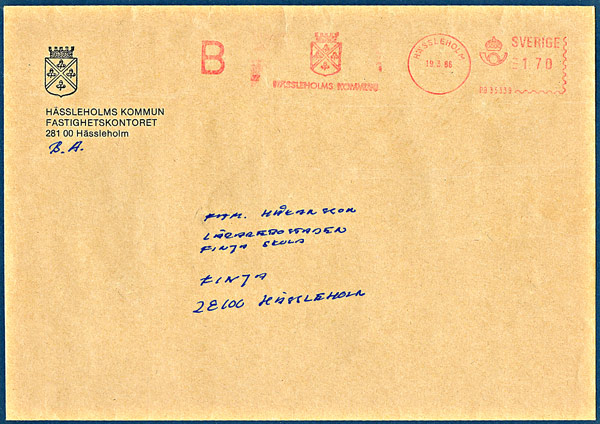 B
HÄSSLEHOLMS KOMMUN
HÄSSLEHOLM
19.3.86
SVERIGE
170
PB 35339
HÄSSLEHOLMS KOMMUN
FASTIGHETSKONTORET
281 00 Hässleholm
B.A.
FAM. HÅKANSSON
LÄRAREBOSTADEN
FINJA SKOLA
FINJA
28100 HÄSSLEHOLM